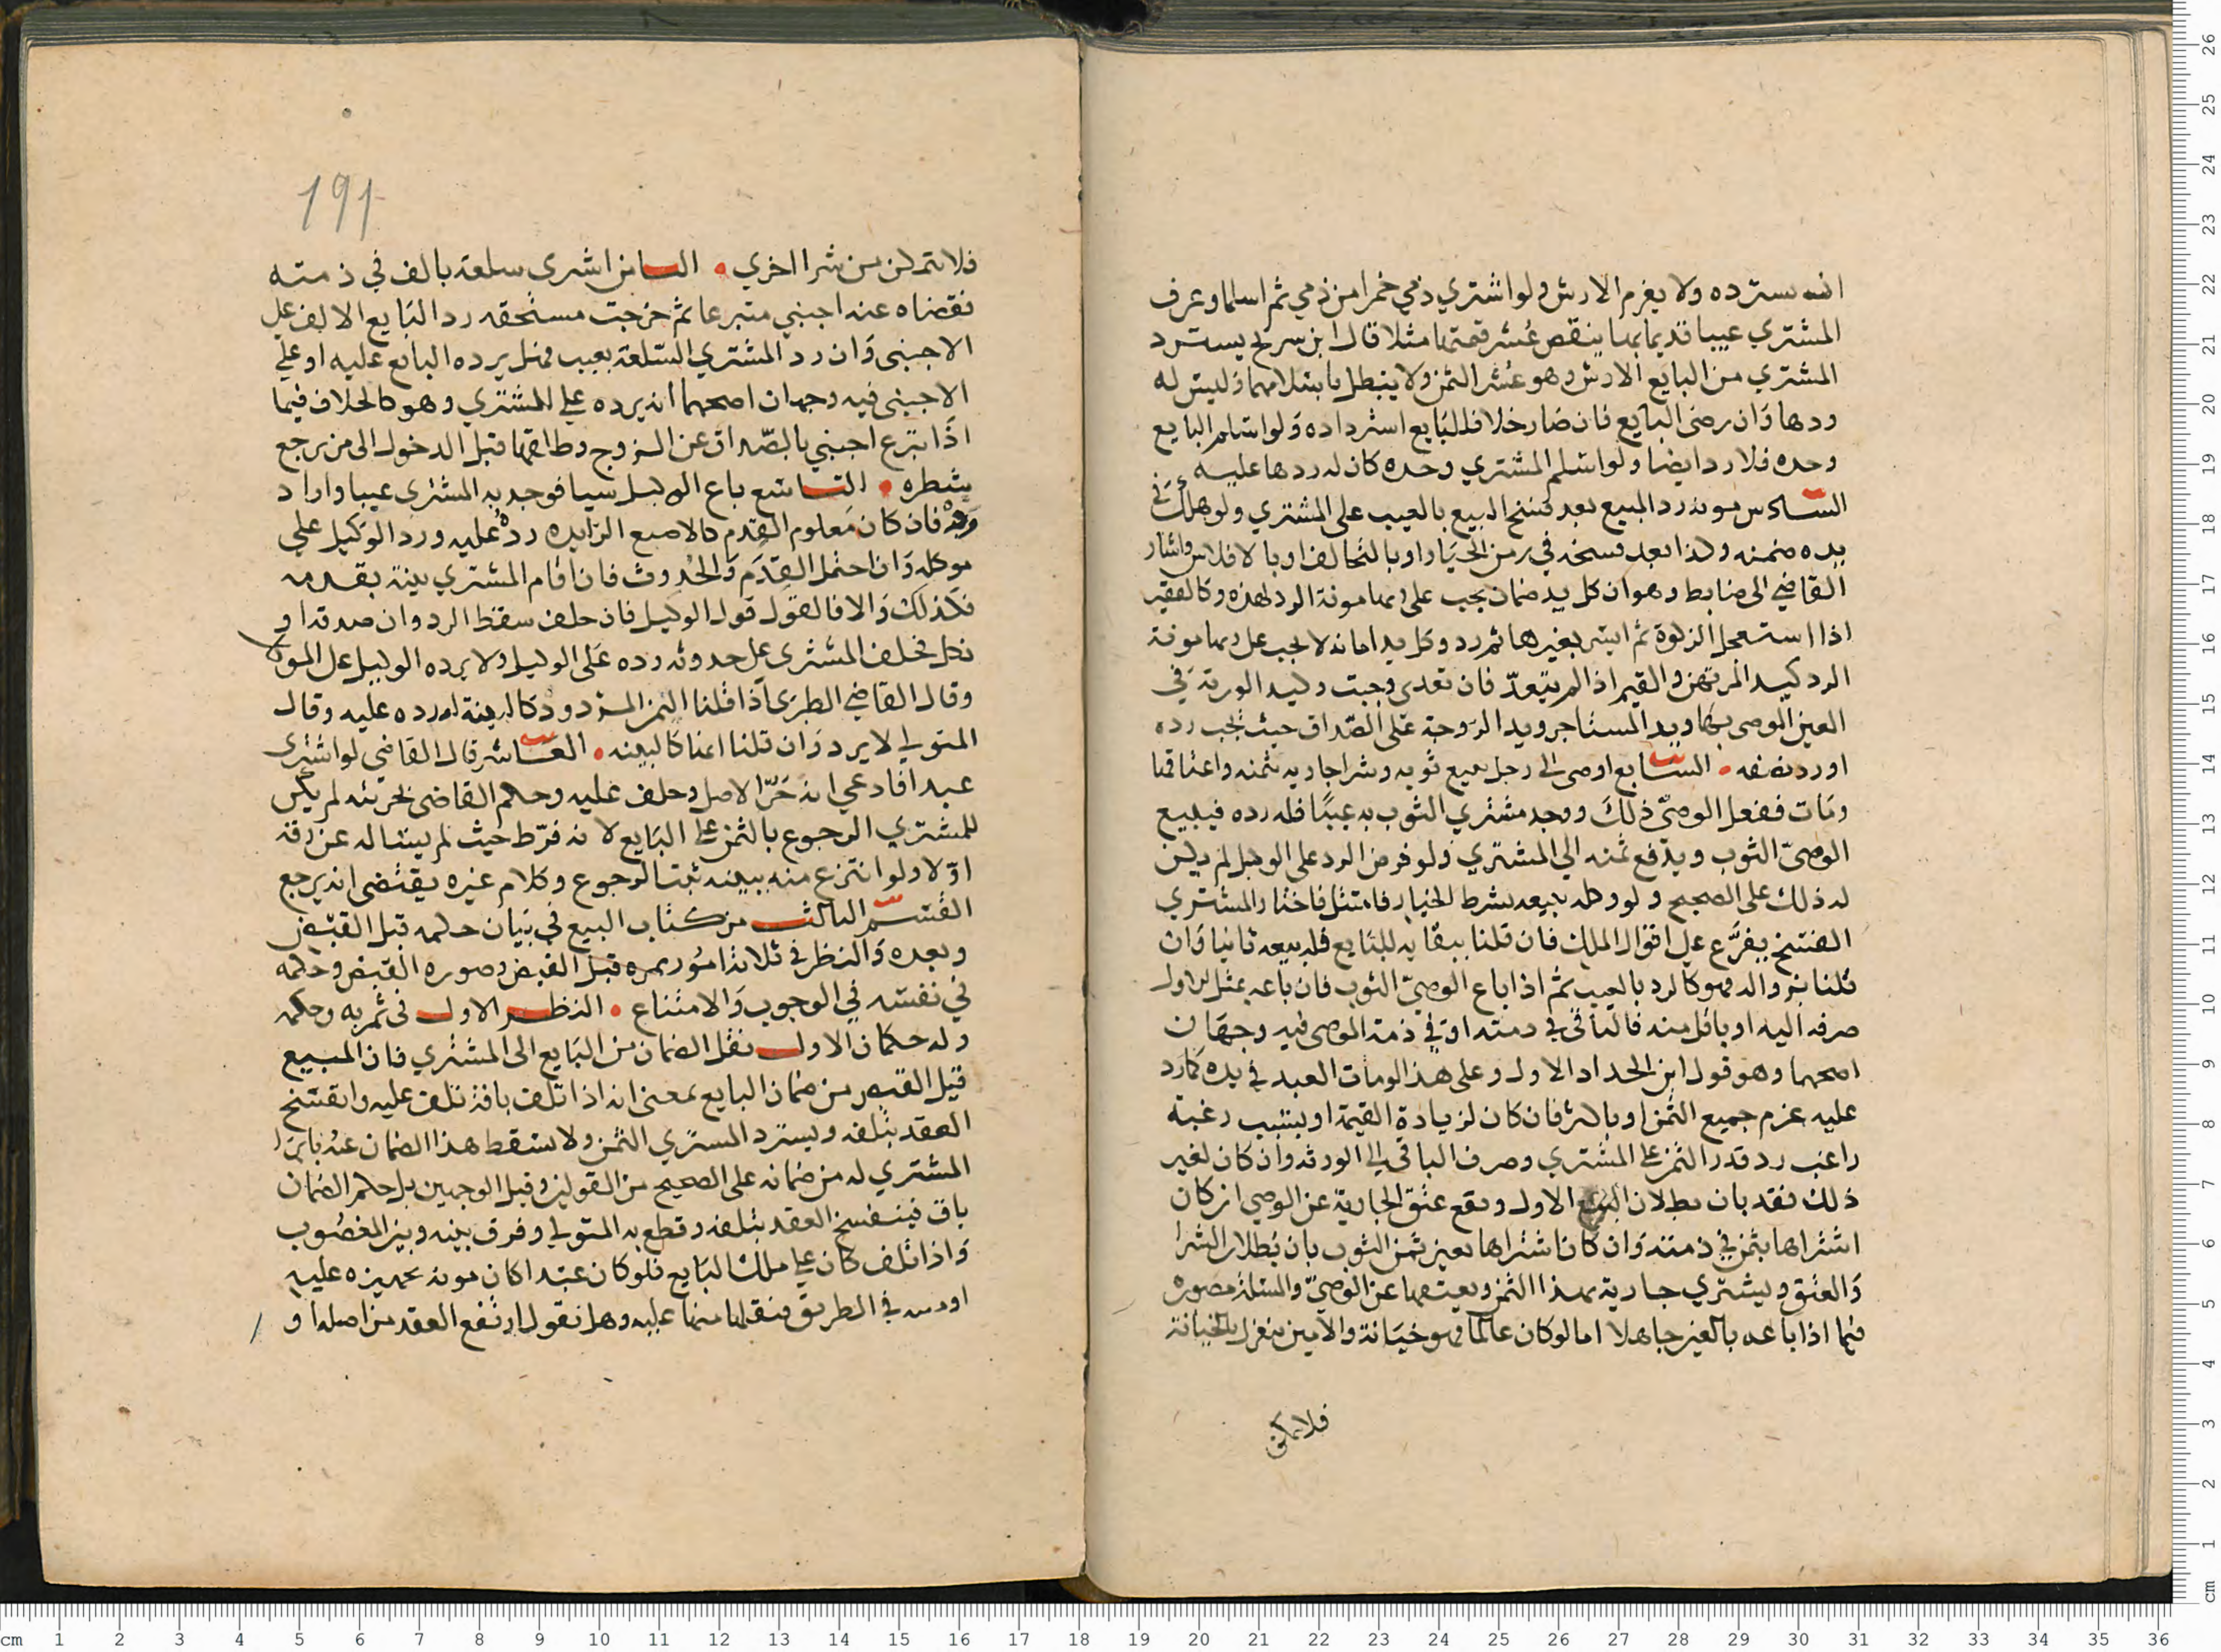 انه يسترده ولا يغرم الارش ولو اشتري ذمي خمرا من ذمي ثم اسلما وعرف
المشتري عيبا قديما بها ينقص عُشر قيمتها مثلا قال ابن سريج يسترد
المشتري من البايع الارش وهو عُشر الثمن ولا يبطل باسلامهما وليس له
ردها وَان رضي البايع فان صَار خلا فللبَايع استرداده وَلو اسلم البايع
وحده فلا رد ايضا ولو اسلم المشتري وحده كان له ردها عليه
السادس مونه رد المبيع بعد فسخ البيع بالعيب على المشتري ولو هلك في
يده ضمنه وكذا بعد فسخه في زمن الخيَار او بالتحالف او بالافلاس واشار
القاضي الى ضابط وهو ان كل يد ضمان يجب على ربها مونة الرد لهذه وكالفقير
اذا استعجل الزكوة ثم ايسر بغيرها ثم رد وكل يد امانه لا يجب على ربها مونة
الرد كيد المرتهن والقيم اذا لم يتعدّ فان تعدى وجبت وكيد الورثة في
العين الموصى بها ويد المستاجر ويد الزوجة عَلى الصّداق حيث يجب رده
او رد نصفه • السَّابع اوصى الى رجل ببيع ثوبه وشرا جاريه بثمنه واعتاقها
ومَات ففعل الوصىّ ذلكَ ووجد مشتري الثوب به عيبًا فله رده فيبيع
الوصىّ الثوب ويدفع ثمنه الي المشتري ولو فرض الرد على الوكيل لم يكن
له ذلك على الصحيح ولو وكله ببيعه بشرط الخيار فامتثل فاختار المشتري
الفسخ يفرَّع على اقوال الملك فان قلنا ببقايه للبَايع فله بيعه ثانيا وَان
قلنا بزواله فهو كالرد بالعيب ثم اذا باع الوصيّ الثوب فان باعه بمثل الاول
صرفه اليه او باقل منه فالباقي في ذمته او في ذمة الموصى فيه وجهَان
اصحهما وهو قول ابن الحداد الاول وعلى هذا لو مات العبد في يده كما رد
عليه غرم جميع الثمن او باكثر فان كان لزيادة القيمة او بسبب رغبة
راغب رد قدر الثمن على المشتري وصرف الباقي الى الورثه وان كان لغير
ذلك فقد بان بطلان البيع الاول ويقع عتق الجارية عن الوصي ان كان
اشتراها بثمن في ذمته وَان كان اشتراها بعين ثمن الثوب بان بُطلان الشرا
وَالعتق ويشتري جارية بهذا الثمن ويعتقها عن الوصيّ والمسئلة مصوره
فيما اذا باعه بالغبن جاهلا اما لو كان عالما فهو خيَانة والامين ينعزل بالخيانة
فلا يمكن
191
فلا يتمكن من شرا اخري • الثامن اشترى سلعة بالف في ذمته
فقضاه عنه اجنبي متبرعا ثم خرجت مستحقه رد البَايع الالف على
الاجنبى وَان رد المشتري السّلعة بعيب فهل يرده البايع عليه او على
الاجنبى فيه وجهان اصحهما انه يرده على المشتري وهو كالخلاف فيما
اذَا تبرع اجنبي بالصّداق عن الزوج وطلقها قبل الدخول الى من يرجع
شطره • التاسع باع الوكيل سيا فوجد به المشترى عيبا واراد
ردّه فان كان مَعلوم القدم كالاصبع الزايده ردهُ عليه ورد الوَكيل على
موكله وَان احتمل القِدَم وَالحُدوث فان اقام المشتري بينة بقدمه
فكذلكَ وَالا فالقول قول الوكيل فان حلف سقط الرد وان صدقه او
نكل فحلف المشترى على حدوثه رده عَلى الوكيل ولا يرده الوكيل على الموكل
وقال القاضي الطبرى اذا قلنا اليمين المردودة كالبينة له رده عليه وقال
المتولي لا يرد وَان قلنا انها كالبينه • العَاشر قال القاضي لو اشترى
عبدا فادعي انه حَرّ الاصل وحلف عليه وحكم القاضى بحريته لم يكن
للمشتري الرجوع بالثمن على البَايع لانه فرّط حيث لم يسَاله عن رقه
اوّلا ولو انتزع منه ببينه ثبت الرجوع وكلام غيره يقتضى انه يرجع
القسم الثالث من كتاب البيع في بَيان حكمه قبل القبض
وبعده وَالنظر في ثلاثة امُور حكمه قبل القبض وصوره القبض وحكمه
في نفسه في الوجوب وَالامتناع • النظر الاول فى ثمربه وحكمه
وله حكمان الاول نقل الضمان من البَايع الى المشتري فان المبيع
قبل القبض من ضمان البايع بمعنى انه اذا تلف بافة تلف عليه وانفسخ
العقد بتلفه ويسترد المشتري الثمن ولا يسقط هذا الضمان عنه بابرا
المشتري له من ضمانه على الصحيح من القولين وقيل الوجهين بل حكم الضمان
باق فينفسخ العقد بتلفه وقطع به المتولي وفرق بينه وبين المغصُوب
وَاذا تلف كان على ملك البَايع فلو كان عبدا كان مونه تجهيزه عليه
او دمه في الطريق فنقلها منها عليه وهل نقول ارتفع العقد من اصله او